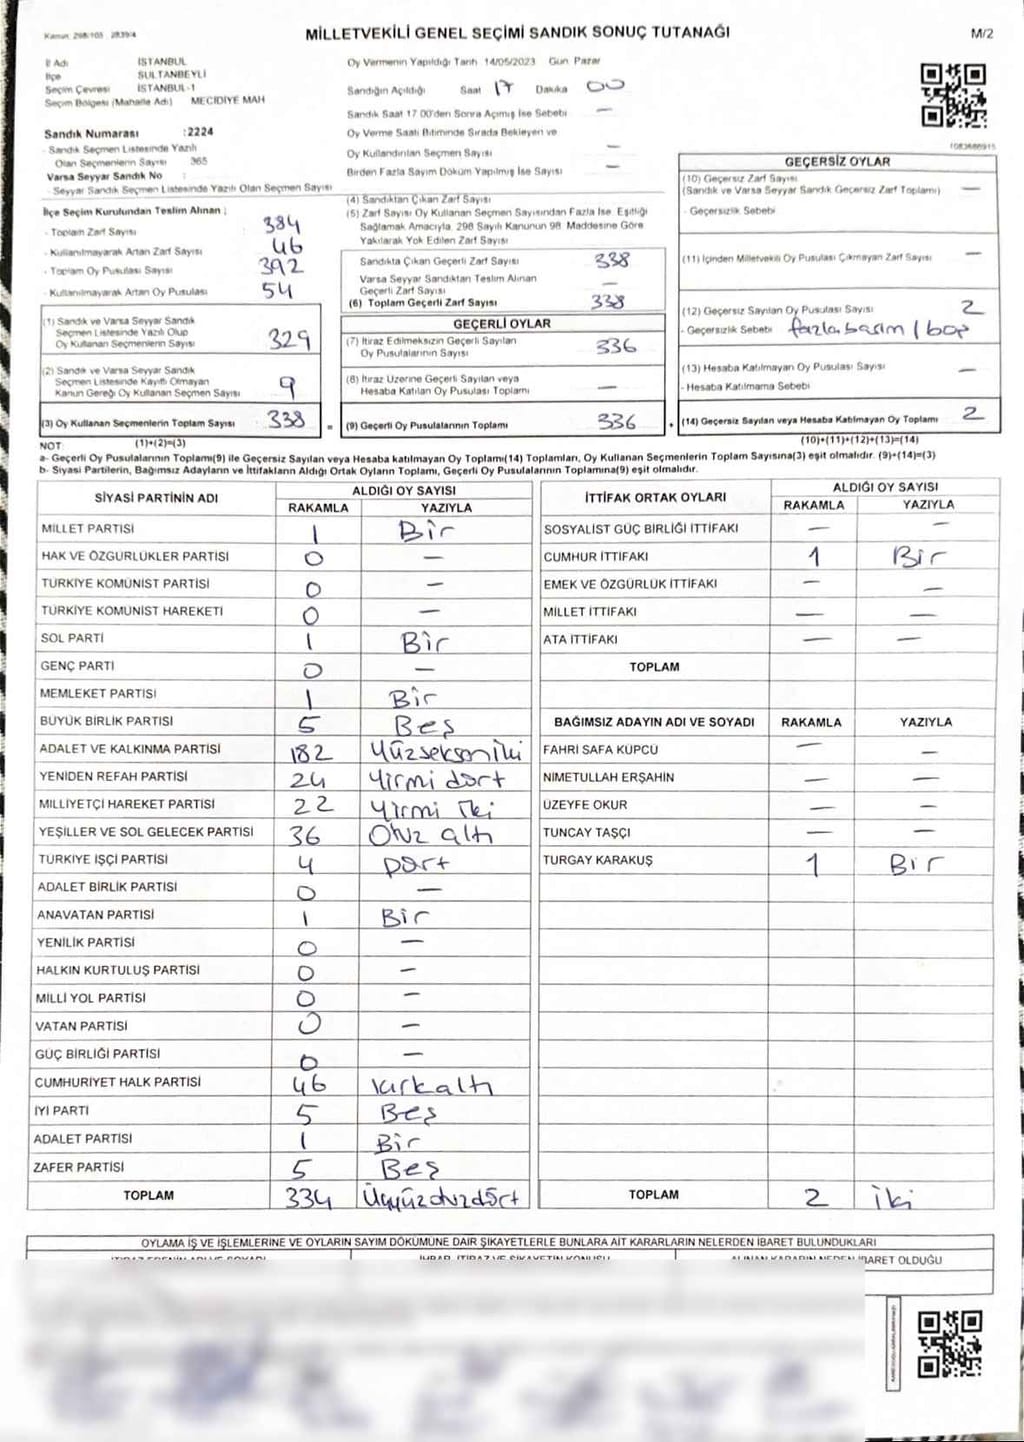 Kanun: 298/105 2839/4
MİLLETVEKİLİ GENEL SEÇİMİ SANDIK SONUÇ TUTANAĞI
M/2
İl Adı İSTANBUL
İlçe SULTANBEYLİ
Seçim Çevresi İSTANBUL-1
Seçim Bölgesi (Mahalle Adı) MECİDİYE MAH
Sandık Numarası :2224
- Sandık Seçmen Listesinde Yazılı
Olan Seçmenlerin Sayısı 365
Varsa Seyyar Sandık No :
- Seyyar Sandık Seçmen Listesinde Yazılı Olan Seçmen Sayısı
Oy Vermenin Yapıldığı Tarih 14/05/2023 Gün Pazar
Sandığın Açıldığı Saat 17 Dakika 00
Sandık Saat 17 00'den Sonra Açılmış İse Sebebi —
Oy Verme Saati Bitiminde Sırada Bekleyen ve
Oy Kullandırılan Seçmen Sayısı —
Birden Fazla Sayım Döküm Yapılmış İse Sayısı —
1083686915
İlçe Seçim Kurulundan Teslim Alınan ;
- Toplam Zarf Sayısı 384
- Kullanılmayarak Artan Zarf Sayısı 46
- Toplam Oy Pusulası Sayısı 392
- Kullanılmayarak Artan Oy Pusulası 54
(1) Sandık ve Varsa Seyyar Sandık
Seçmen Listesinde Yazılı Olup
Oy Kullanan Seçmenlerin Sayısı 329
(2) Sandık ve Varsa Seyyar Sandık
Seçmen Listesinde Kayıtlı Olmayan
Kanun Gereği Oy Kullanan Seçmen Sayısı 9
(3) Oy Kullanan Seçmenlerin Toplam Sayısı 338 =
(1)+(2)=(3)
(4) Sandıktan Çıkan Zarf Sayısı
(5) Zarf Sayısı Oy Kullanan Seçmen Sayısından Fazla İse, Eşitliği
Sağlamak Amacıyla, 298 Sayılı Kanunun 98. Maddesine Göre
Yakılarak Yok Edilen Zarf Sayısı
Sandıkta Çıkan Geçerli Zarf Sayısı 338
Varsa Seyyar Sandıktan Teslim Alınan
Geçerli Zarf Sayısı —
(6) Toplam Geçerli Zarf Sayısı 338
GEÇERLİ OYLAR
(7) İtiraz Edilmeksizin Geçerli Sayılan
Oy Pusulalarının Sayısı 336
(8) İtiraz Üzerine Geçerli Sayılan veya
Hesaba Katılan Oy Pusulası Toplamı —
(9) Geçerli Oy Pusulalarının Toplamı 336 +
GEÇERSİZ OYLAR
(10) Geçersiz Zarf Sayısı
(Sandık ve Varsa Seyyar Sandık Geçersiz Zarf Toplamı) —
- Geçersizlik Sebebi
(11) İçinden Milletvekili Oy Pusulası Çıkmayan Zarf Sayısı —
(12) Geçersiz Sayılan Oy Pusulası Sayısı 2
- Geçersizlik Sebebi
(13) Hesaba Katılmayan Oy Pusulası Sayısı —
- Hesaba Katılmama Sebebi
(14) Geçersiz Sayılan veya Hesaba Katılmayan Oy Toplamı 2
(10)+(11)+(12)+(13)=(14)
NOT:
a- Geçerli Oy Pusulalarının Toplamı(9) ile Geçersiz Sayılan veya Hesaba katılmayan Oy Toplamı(14) Toplamları, Oy Kullanan Seçmenlerin Toplam Sayısına(3) eşit olmalıdır. (9)+(14)=(3)
b- Siyasi Partilerin, Bağımsız Adayların ve İttifakların Aldığı Ortak Oyların Toplamı, Geçerli Oy Pusulalarının Toplamına(9) eşit olmalıdır.
SİYASİ PARTİNİN ADI ALDIĞI OY SAYISI
RAKAMLA YAZIYLA
MİLLET PARTİSİ 1 Bir
HAK VE ÖZGÜRLÜKLER PARTİSİ 0 —
TÜRKİYE KOMÜNİST PARTİSİ 0 —
TÜRKİYE KOMÜNİST HAREKETİ 0 —
SOL PARTİ 1 Bir
GENÇ PARTİ 0 —
MEMLEKET PARTİSİ 1 Bir
BÜYÜK BİRLİK PARTİSİ 5 Beş
ADALET VE KALKINMA PARTİSİ 182 Yüzseksen iki
YENİDEN REFAH PARTİSİ 24 Yirmi dört
MİLLİYETÇİ HAREKET PARTİSİ 22 Yirmi iki
YEŞİLLER VE SOL GELECEK PARTİSİ 36 Otuz altı
TÜRKİYE İŞÇİ PARTİSİ 4 Dört
ADALET BİRLİK PARTİSİ 0 —
ANAVATAN PARTİSİ 1 Bir
YENİLİK PARTİSİ 0 —
HALKIN KURTULUŞ PARTİSİ 0 —
MİLLİ YOL PARTİSİ 0 —
VATAN PARTİSİ 0 —
GÜÇ BİRLİĞİ PARTİSİ 0 —
CUMHURİYET HALK PARTİSİ 46 kırkaltı
İYİ PARTİ 5 Beş
ADALET PARTİSİ 1 Bir
ZAFER PARTİSİ 5 Beş
TOPLAM 334 Üçyüzotuzdört
İTTİFAK ORTAK OYLARI ALDIĞI OY SAYISI
RAKAMLA YAZIYLA
SOSYALİST GÜÇ BİRLİĞİ İTTİFAKI — —
CUMHUR İTTİFAKI 1 Bir
EMEK VE ÖZGÜRLÜK İTTİFAKI — —
MİLLET İTTİFAKI — —
ATA İTTİFAKI — —
TOPLAM
BAĞIMSIZ ADAYIN ADI VE SOYADI RAKAMLA YAZIYLA
FAHRİ SAFA KÜPCÜ — —
NİMETULLAH ERŞAHİN — —
ÜZEYFE OKUR — —
TUNCAY TAŞÇI — —
TURGAY KARAKUŞ 1 Bir
TOPLAM 2 İki
OYLAMA İŞ VE İŞLEMLERİNE VE OYLARIN SAYIM DÖKÜMÜNE DAİR ŞİKAYETLERLE BUNLARA AİT KARARLARIN NELERDEN İBARET BULUNDUKLARI
İHBAR, İTİRAZ VE ŞİKAYETİN KONUSU
ALINAN KARARIN NEDEN İBARET OLDUĞU